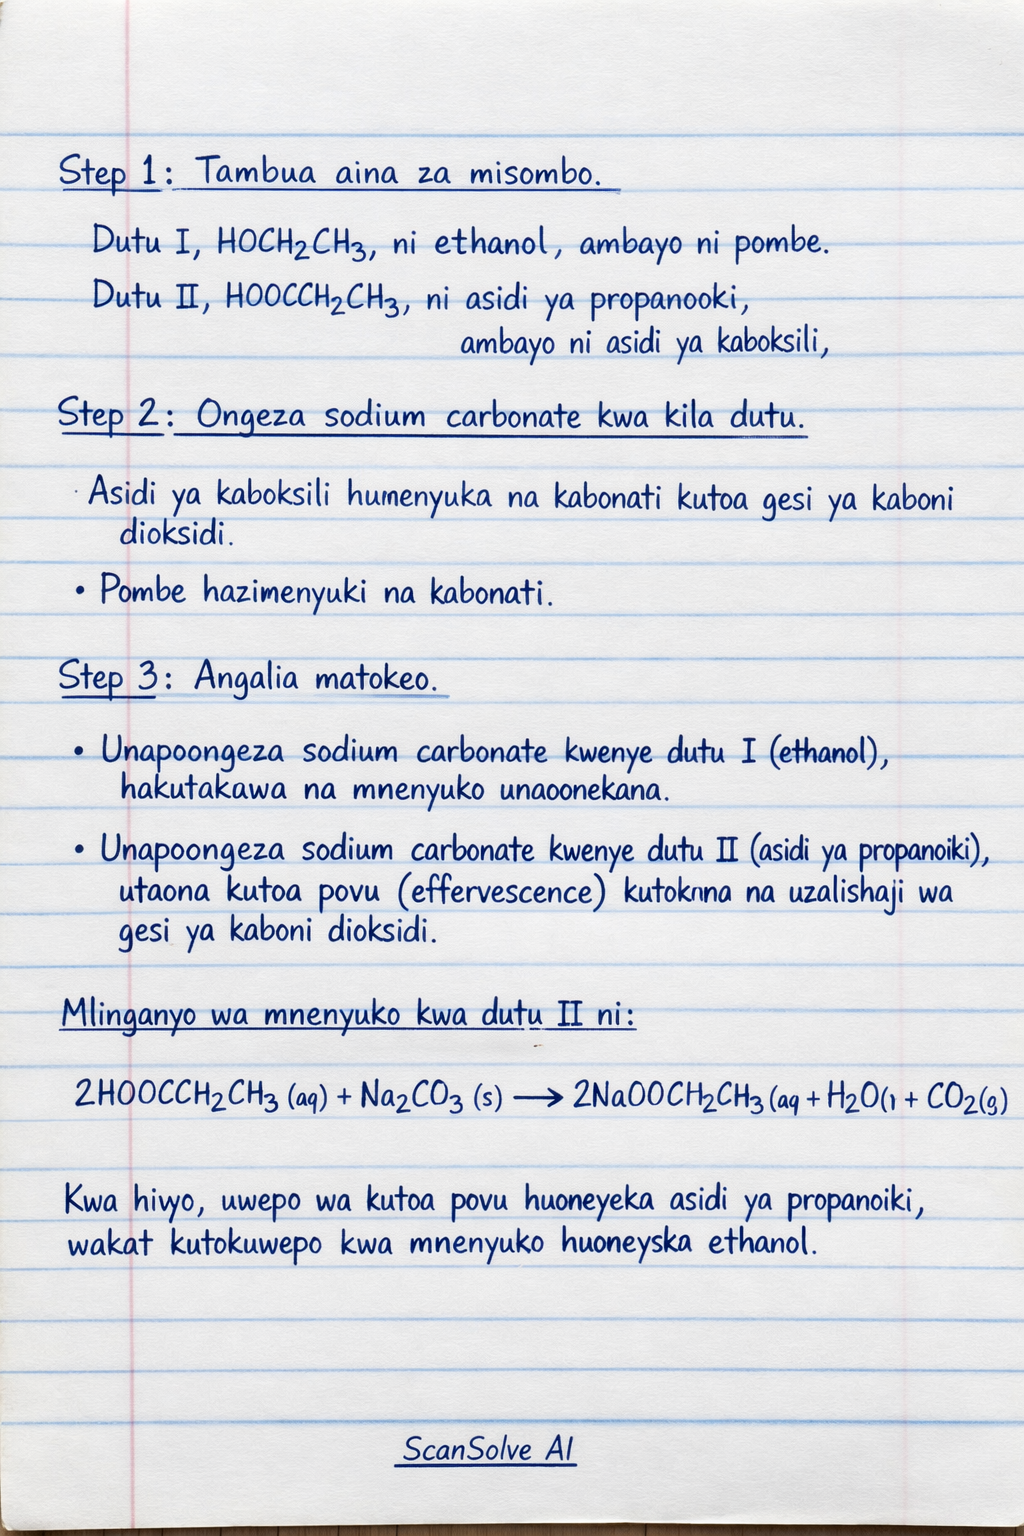 Step 1: Tambua aina za misombo.
Dutu I, HOCH₂CH₃, ni ethanol, ambayo ni pombe.
Dutu II, HOOCCH₂CH₃, ni asidi ya propanooki,
ambayo ni asidi ya kaboksili,
Step 2: Ongeza sodium carbonate kwa kila dutu.
· Asidi ya kaboksili humenyuka na kabonati kutoa gesi ya kaboni
dioksidi.
• Pombe hazimenyuki na kabonati.
Step 3: Angalia matokeo.
• Unapoongeza sodium carbonate kwenye dutu I (ethanol),
hakutakawa na mnenyuko unaoonekana.
• Unapoongeza sodium carbonate kwenye dutu II (asidi ya propanoiki),
utaona kutoa povu (effervescence) kutoknna na uzalishaji wa
gesi ya kaboni dioksidi.
Mlinganyo wa mnenyuko kwa dutu II ni:
2HOOCCH₂CH₃ (aq) + Na₂CO₃ (s) → 2NaOOCH₂CH₃ (aq + H₂O(l + CO₂(g)
Kwa hivyo, uwepo wa kutoa povu huoneyeka asidi ya propanoiki,
wakat kutokuwepo kwa mnenyuko huoneyska ethanol.
ScanSolve AI